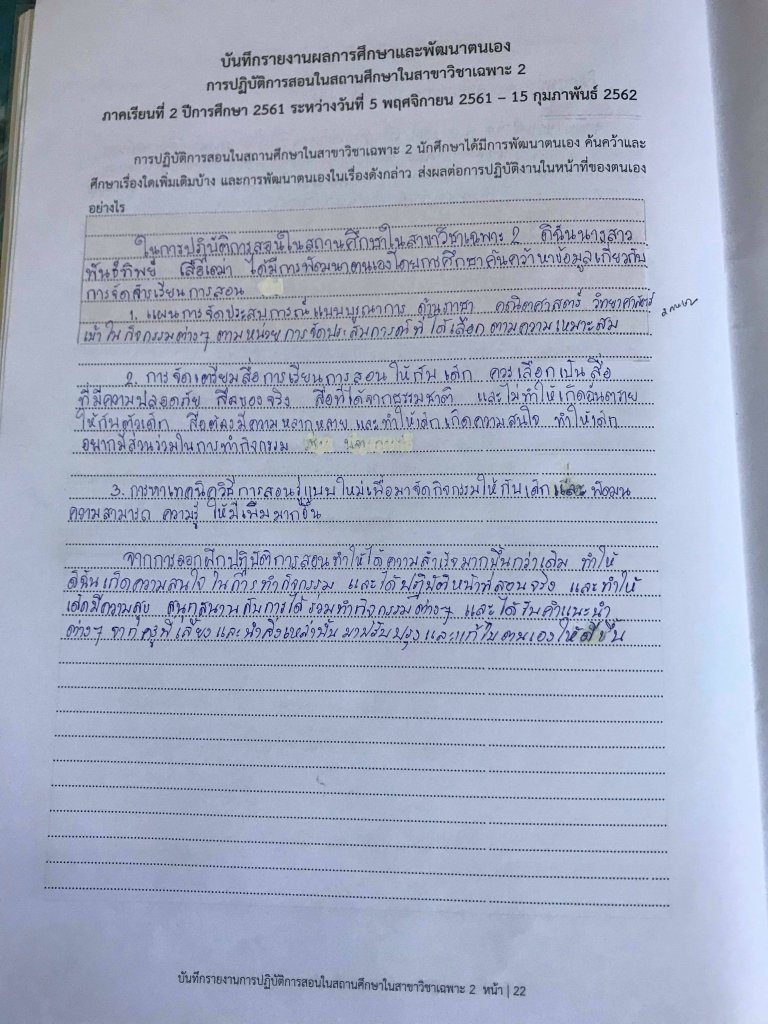 บันทึกรายงานผลการศึกษาและพัฒนาตนเอง
การปฏิบัติการสอนในสถานศึกษาในสาขาวิชาเฉพาะ 2
ภาคเรียนที่ 2 ปีการศึกษา 2561 ระหว่างวันที่ 5 พฤศจิกายน 2561 – 15 กุมภาพันธ์ 2562
การปฏิบัติการสอนในสถานศึกษาในสาขาวิชาเฉพาะ 2 นักศึกษาได้มีการพัฒนาตนเอง ค้นคว้าและ
ศึกษาเรื่องใดเพิ่มเติมบ้าง และการพัฒนาตนเองในเรื่องดังกล่าว ส่งผลต่อการปฏิบัติงานในหน้าที่ของตนเอง
อย่างไร
ในการปฏิบัติการสอนในสถานศึกษาในสาขาวิชาเฉพาะ 2 ดิฉันนางสาว
พันธ์ทิพย์ ได้มีการพัฒนาตนเองโดยการศึกษาค้นคว้าหาข้อมูลเกี่ยวกับ
การจัดการเรียนการสอน
1. แผนการจัดประสบการณ์แบบบูรณาการ ด้านภาษา คณิตศาสตร์ วิทยาศาสตร์
เข้าในกิจกรรมต่างๆ ตามหน่วยการจัดประสบการณ์ที่ได้เลือกตามความเหมาะสม
2. การจัดเตรียมสื่อการเรียนการสอนให้กับเด็ก ควรเลือกเป็นสื่อ
ที่มีความปลอดภัย สื่อของจริง สื่อที่ได้จากธรรมชาติ และไม่ทำให้เกิดอันตราย
ให้กับตัวเด็ก สื่อต้องมีความหลากหลายและทำให้เด็กเกิดความสนใจ ทำให้เด็ก
อยากมีส่วนร่วมในการทำกิจกรรม
3. การหาเทคนิควิธีการสอนรูปแบบใหม่เพื่อมาจัดกิจกรรมให้กับเด็กและพัฒนา
ความสามารถ ความรู้ ให้มีเพิ่มมากขึ้น
จากการออกฝึกปฏิบัติการสอนทำให้ได้ความสำเร็จมากขึ้นกว่าเดิม ทำให้
ดิฉันเกิดความสนใจในการทำกิจกรรม และได้ปฏิบัติหน้าที่สอนจริง และทำให้
เด็กมีความสุข สนุกสนานกับการได้ร่วมทำกิจกรรมต่างๆ และได้รับคำแนะนำ
ต่างๆ จากครูพี่เลี้ยงและนำสิ่งเหล่านั้นมาปรับปรุงและแก้ไขตนเองให้ดีขึ้น
บันทึกรายงานการปฏิบัติการสอนในสถานศึกษาในสาขาวิชาเฉพาะ 2 หน้า | 22